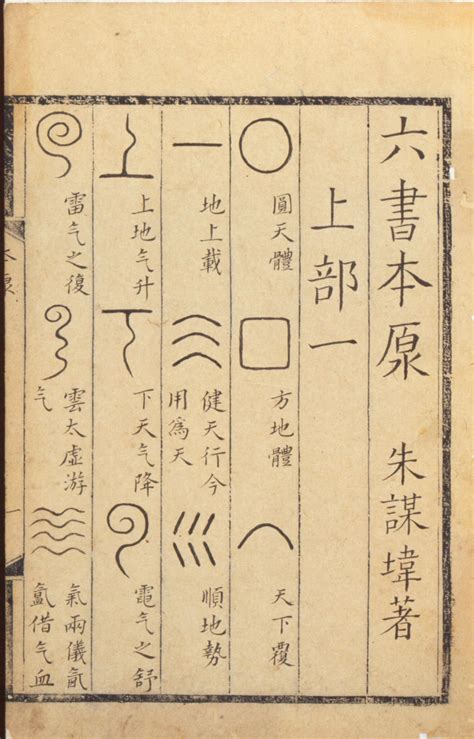 六書本原 朱謀㙔著
上部一
圓天體
方地體
天下覆
地上載
健天行今
用爲天
順地勢
上地气升
下天气降
電气之舒
雷气之復
雲太虛游
气
氣兩儀氤
氲借气血